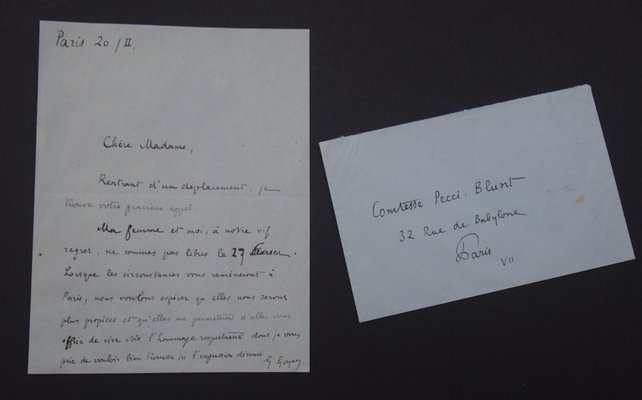 Paris 20/II.
Chère Madame,
Rentrant d'un déplacement, je
trouve votre gracieux appel.
Ma femme et moi, à notre vif
regret, ne sommes pas libres le 27 février.
Lorsque les circonstances vous ramèneront à
Paris, nous voulons espérer qu'elles nous seront
plus propices et qu'elles me permettront d'aller vous
offrir de vive voix l'hommage respectueux dont je vous
prie de vouloir bien trouver ici l'expression
G.
Comtesse Pecci-Blunt
32 Rue de Babylone
Paris
VII